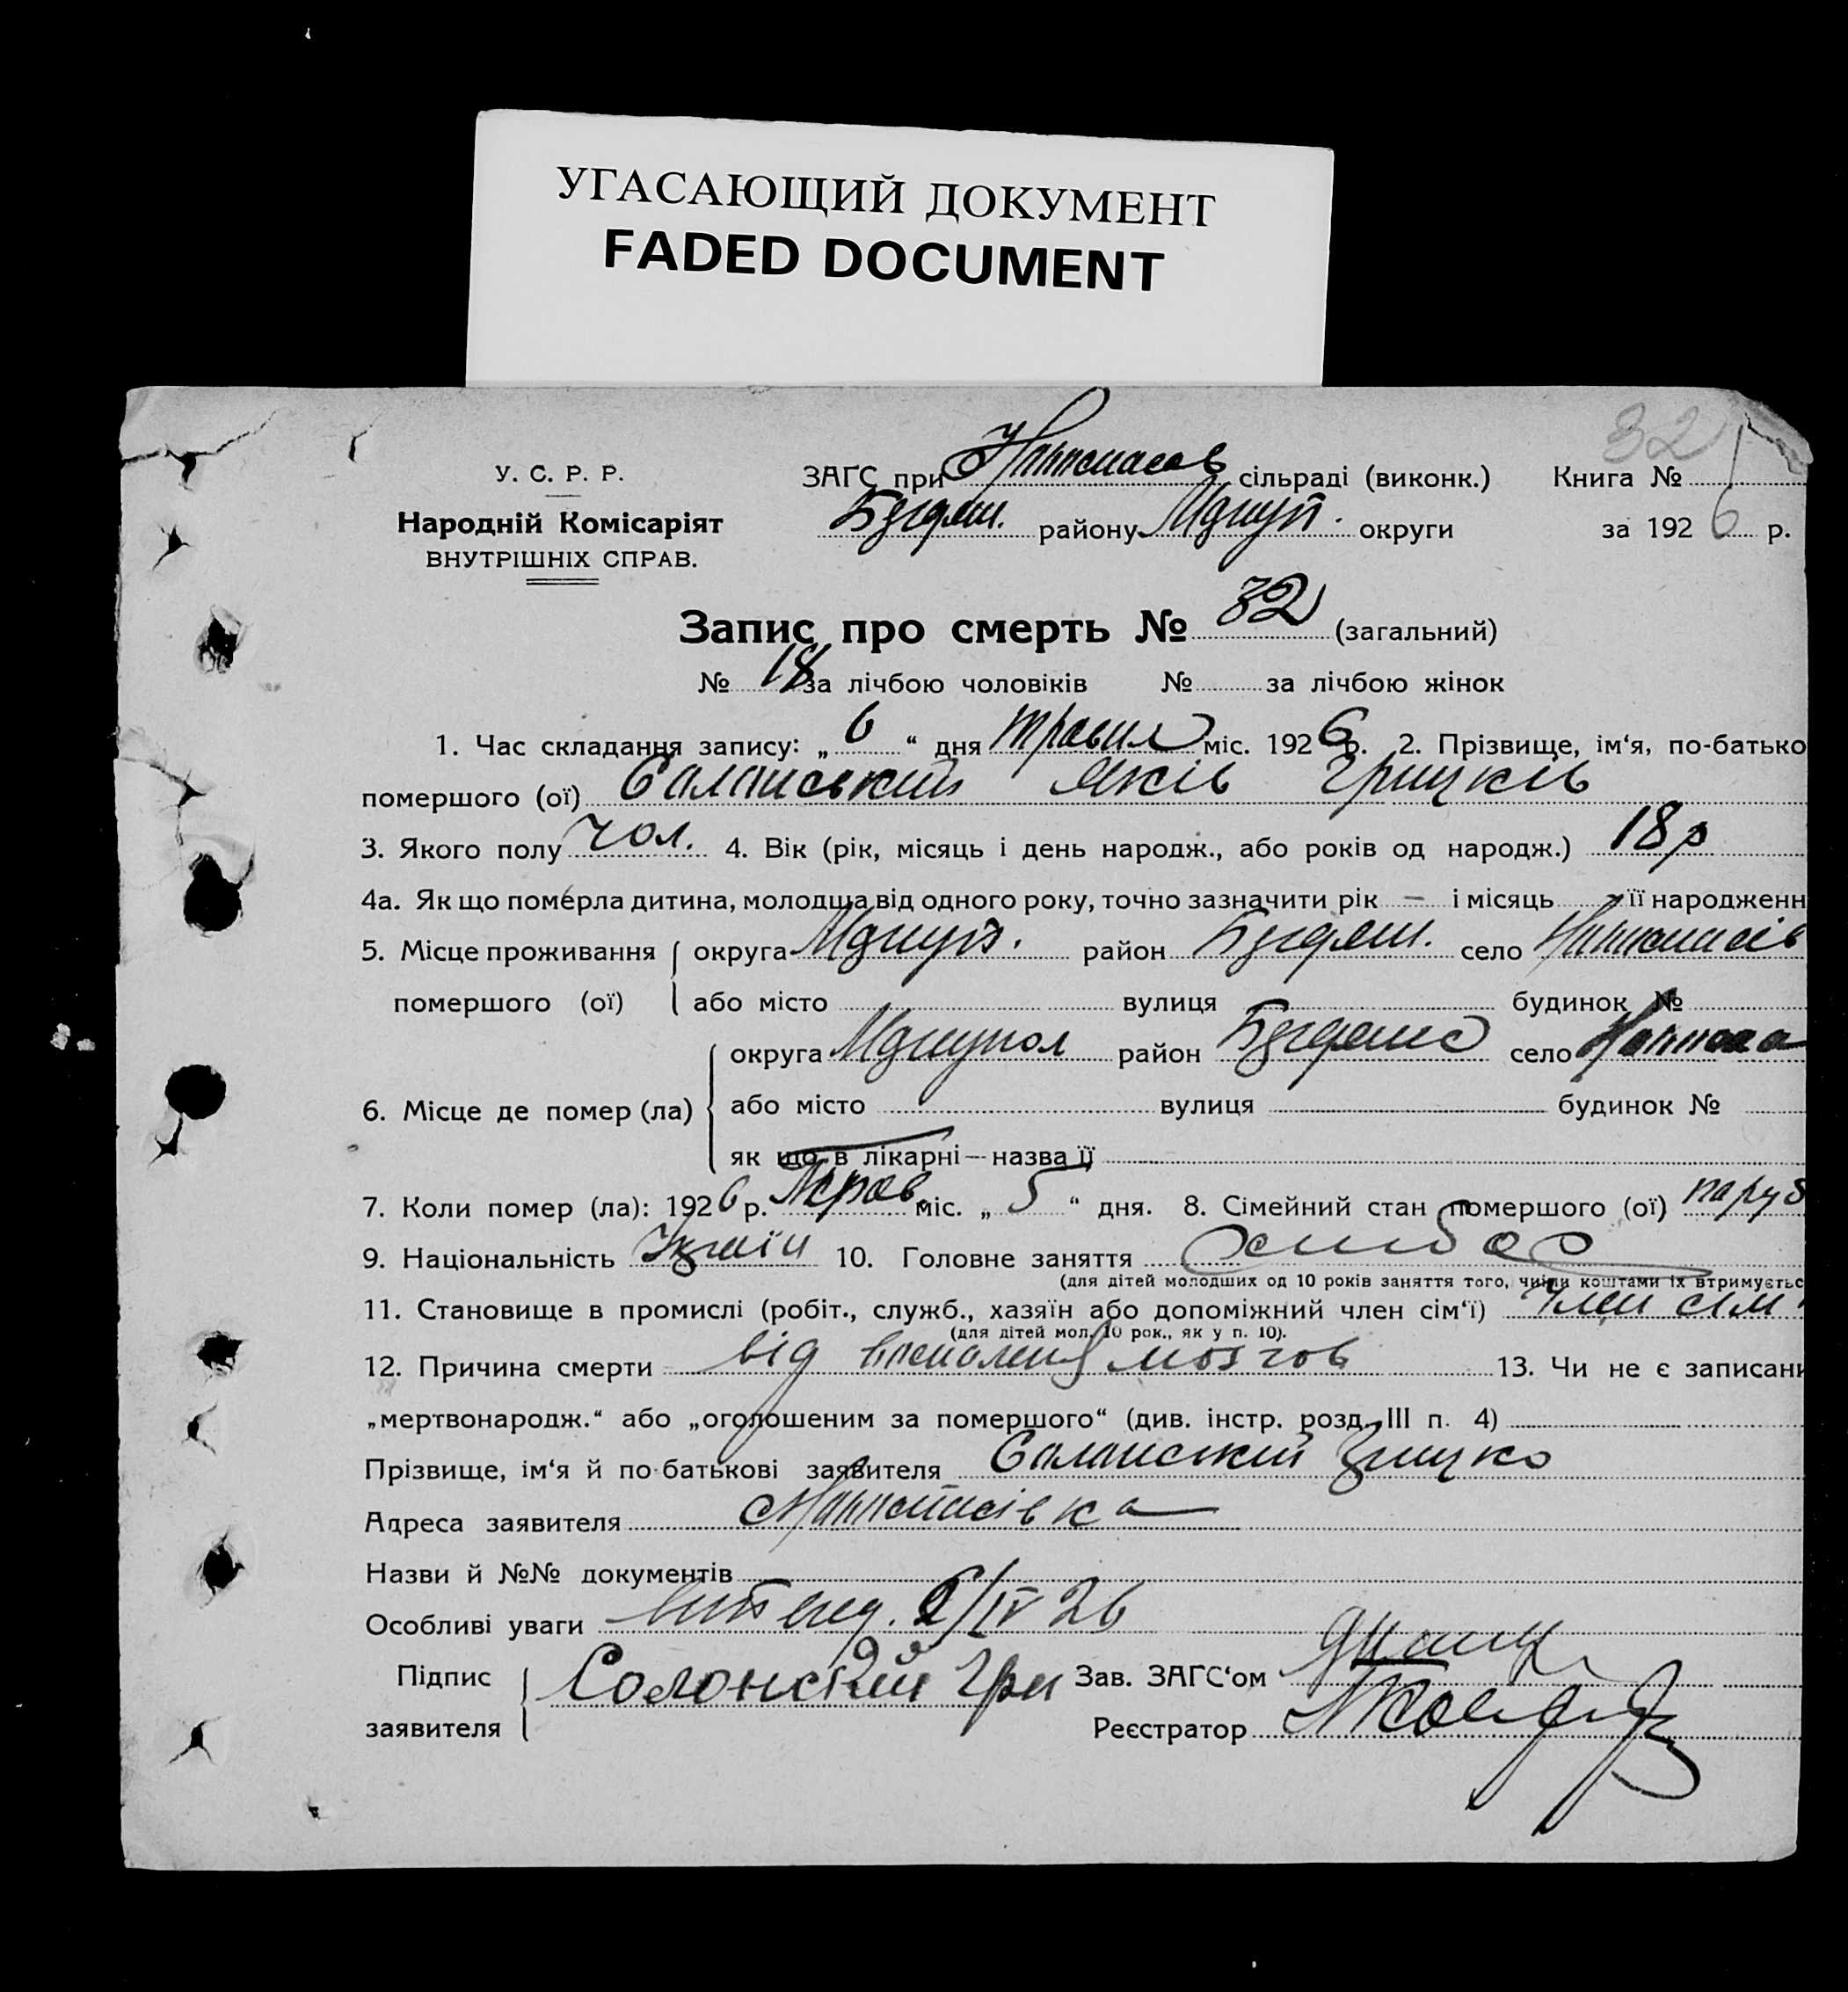 УГАСАЮЩИЙ ДОКУМЕНТ
FADED DOCUMENT
32
У. С. Р. Р.
Народній Комісаріят
ВНУТРІШНІХ СПРАВ.
ЗАҐС при сільраді (виконк.) Книга №
району округи за 1926 р.
Запис про смерть № 32 (загальний)
№ 18 за лічбою чоловіків № за лічбою жінок
1. Час складання запису: „ 6 “ дня травня міс. 1926 р. 2. Прізвище, ім‘я, по-батько
помершого (ої) Саланський Яків Грицків
3. Якого полу чол. 4. Вік (рік, місяць і день народж., або років од народж.) 18 р
4а. Як що померла дитина, молодша від одного року, точно зазначити рік – і місяць – її народженн
5. Місце проживання округа район село
помершого (ої) або місто вулиця будинок №
округа район село
6. Місце де помер (ла) або місто вулиця будинок №
як що в лікарні — назва її
7. Коли помер (ла): 1926 р. Трав. міс. „ 5 “ дня. 8. Сімейний стан помершого (ої) паруб
9. Національність 10. Головне заняття
(для дітей молодших од 10 років заняття того, чиїми коштами їх втримуєтьс
11. Становище в промислі (робіт., служб., хазяїн або допоміжний член сім‘ї) член сім
(для дітей мол. 10 рок., як у п. 10).
12. Причина смерти від мозгов 13. Чи не є записани
„мертвонародж.“ або „оголошеним за помершого“ (див. інстр. розд. III п. 4)
Прізвище, ім‘я й по-батькові заявителя Саланський Грицко
Адреса заявителя
Назви й №№ документів
Особливі уваги 6/IV 26
Підпис Солонский Гри Зав. ЗАҐС‘ом
заявителя Реєстратор